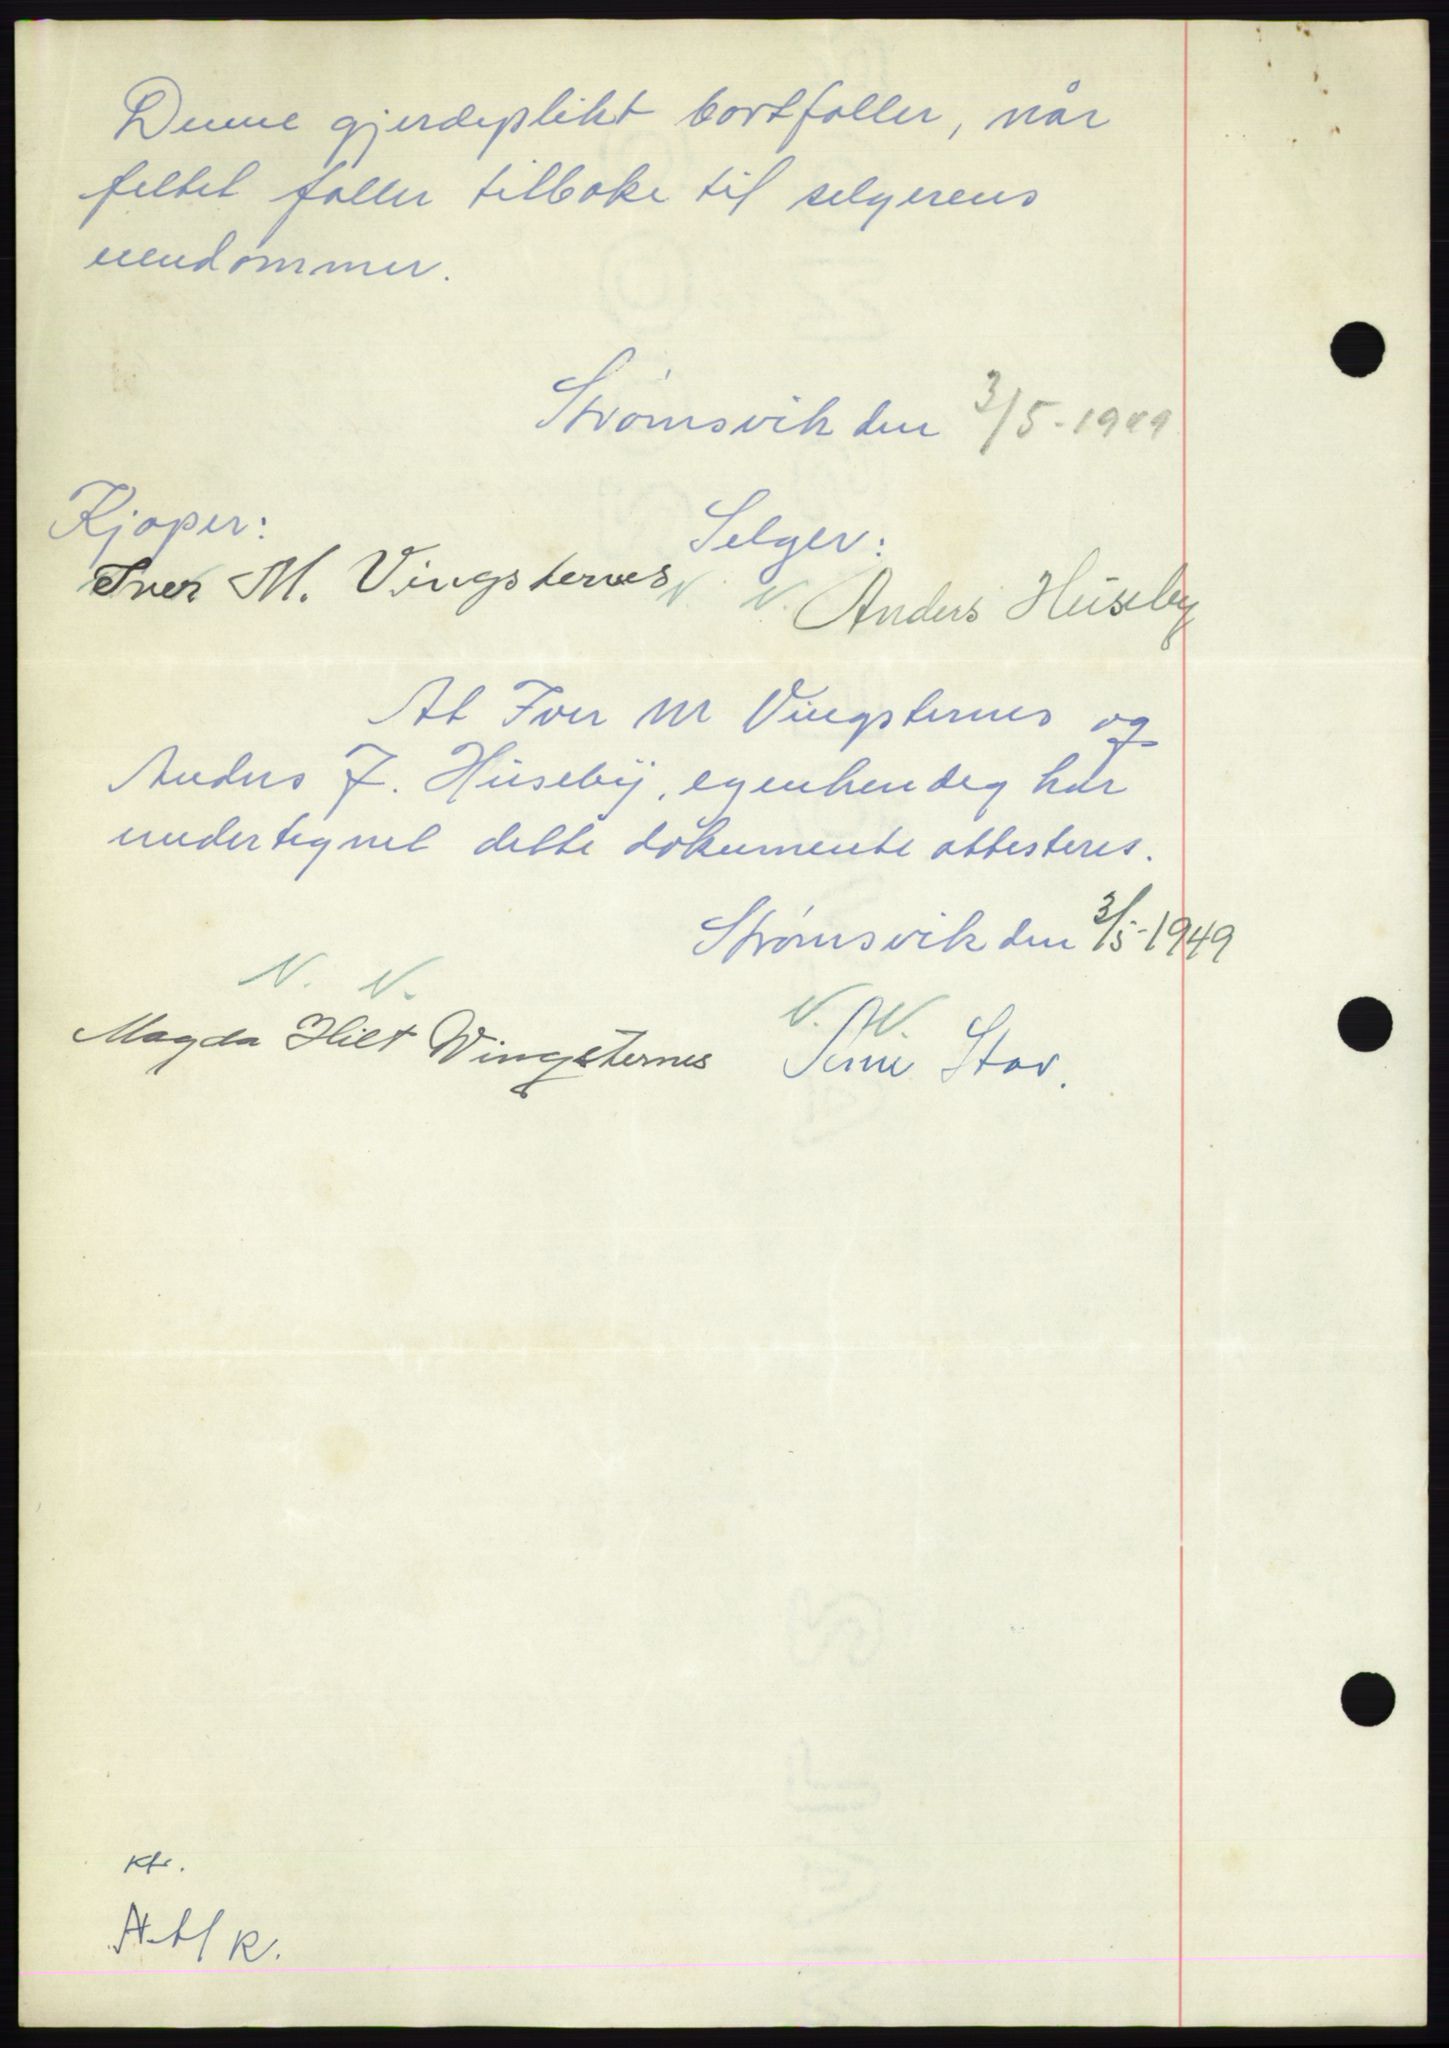 Denne gjerdeplikt bortfaller, når
feltet faller tilbake til selgerens
eiendommer.
Strømsvik den 3/5-1949
Kjøper:
Selger:
Iver M. Vingsternes
V. V. Anders Húseby
At Iver M Vingsternes og
Anders J. Húsebÿ, egenhendig har
undertegnet dette dokumente attesteres.
Strømsvik den 3/5-1949
V. V.
V. V.
Magda Hilt Wingsternes
Stav.
Ktr.